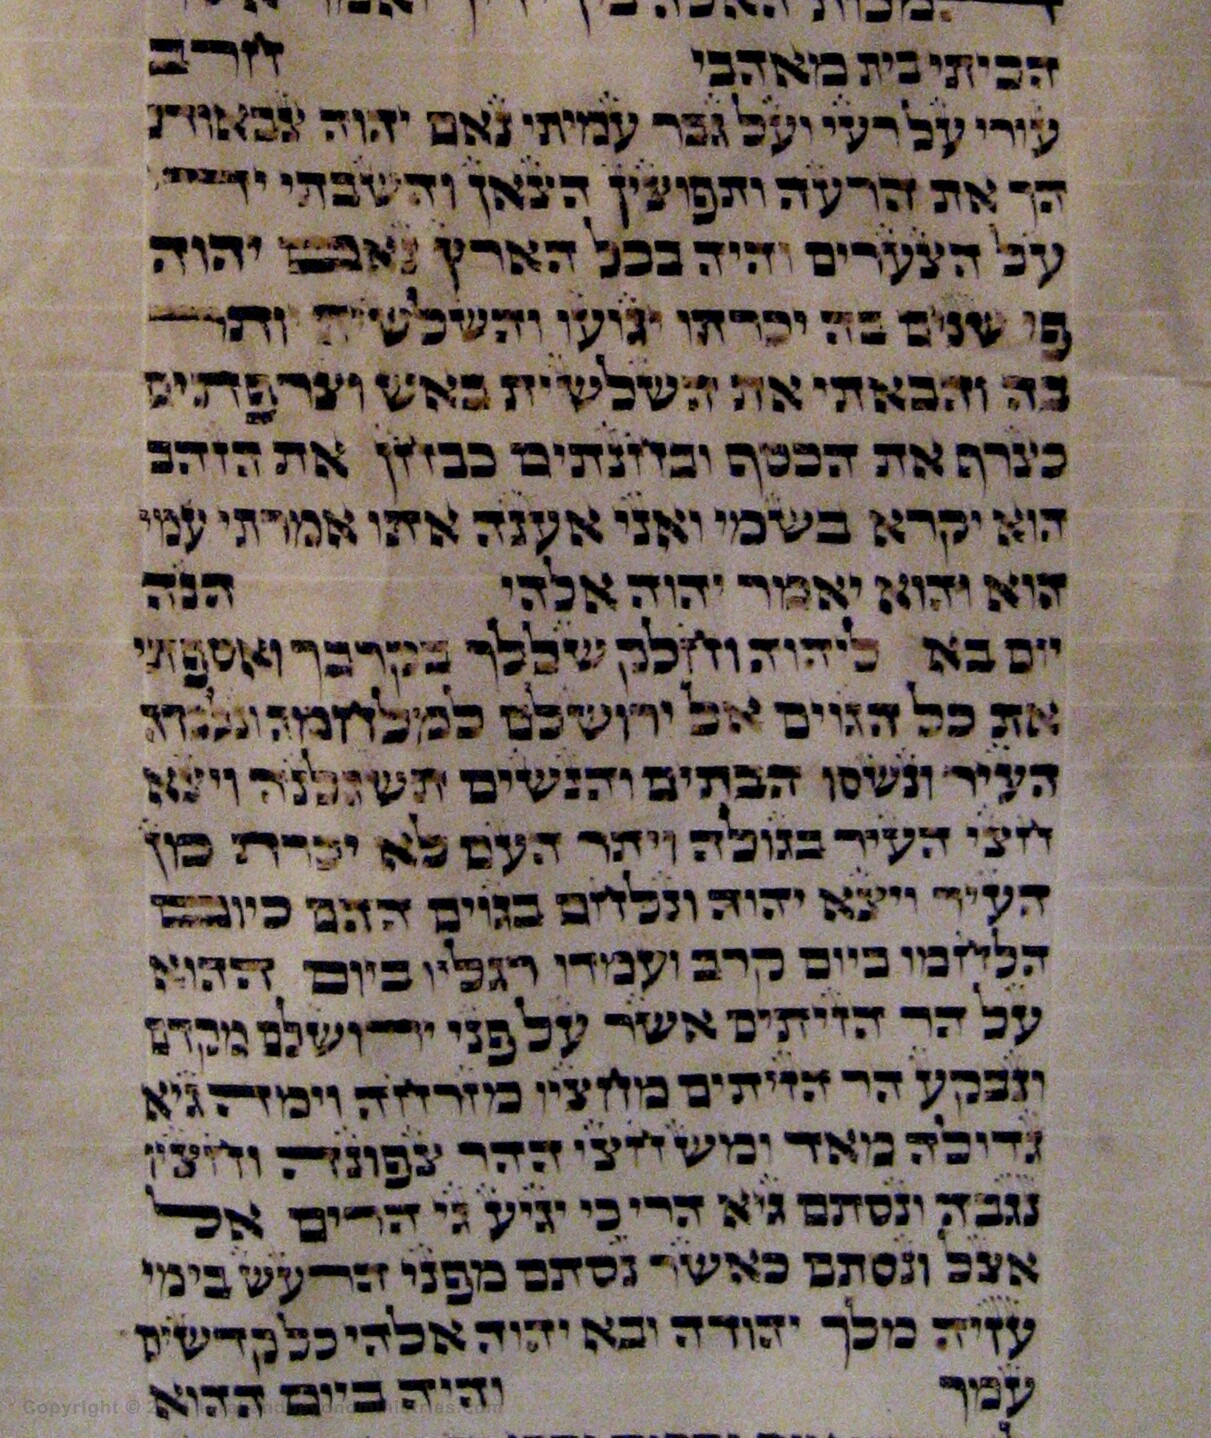 המכות האלה בין ידיך ואמר אשר
הכיתי בית מאהבי חרב
עורי על רעי ועל גבר עמיתי נאם יהוה צבאות
הך את הרעה ותפוצין הצאן והשבתי ידי
על הצערים והיה בכל הארץ נאם יהוה
פי שנים בה יכרתו יגועו והשלשית יותר
בה והבאתי את השלשית באש וצרפתים
כצרף את הכסף ובחנתים כבחן את הזהב
הוא יקרא בשמי ואני אענה אתו אמרתי עמי
הוא והוא יאמר יהוה אלהי הנה
יום בא ליהוה וחלק שללך בקרבך ואספתי
את כל הגוים אל ירושלם למלחמה ונלכדה
העיר ונשסו הבתים והנשים תשגלנה ויצא
חצי העיר בגולה ויתר העם לא יכרת מן
העיר ויצא יהוה ונלחם בגוים ההם כיום
הלחמו ביום קרב ועמדו רגליו ביום ההוא
על הר הזיתים אשר על פני ירושלם מקדם
ונבקע הר הזיתים מחציו מזרחה וימה גיא
גדולה מאד ומש חצי ההר צפונה וחציו
נגבה ונסתם גיא הרי כי יגיע גי הרים אל
אצל ונסתם כאשר נסתם מפני הרעש בימי
עזיה מלך יהודה ובא יהוה אלהי כל קדשים
עמך והיה ביום ההוא
Copyright ©